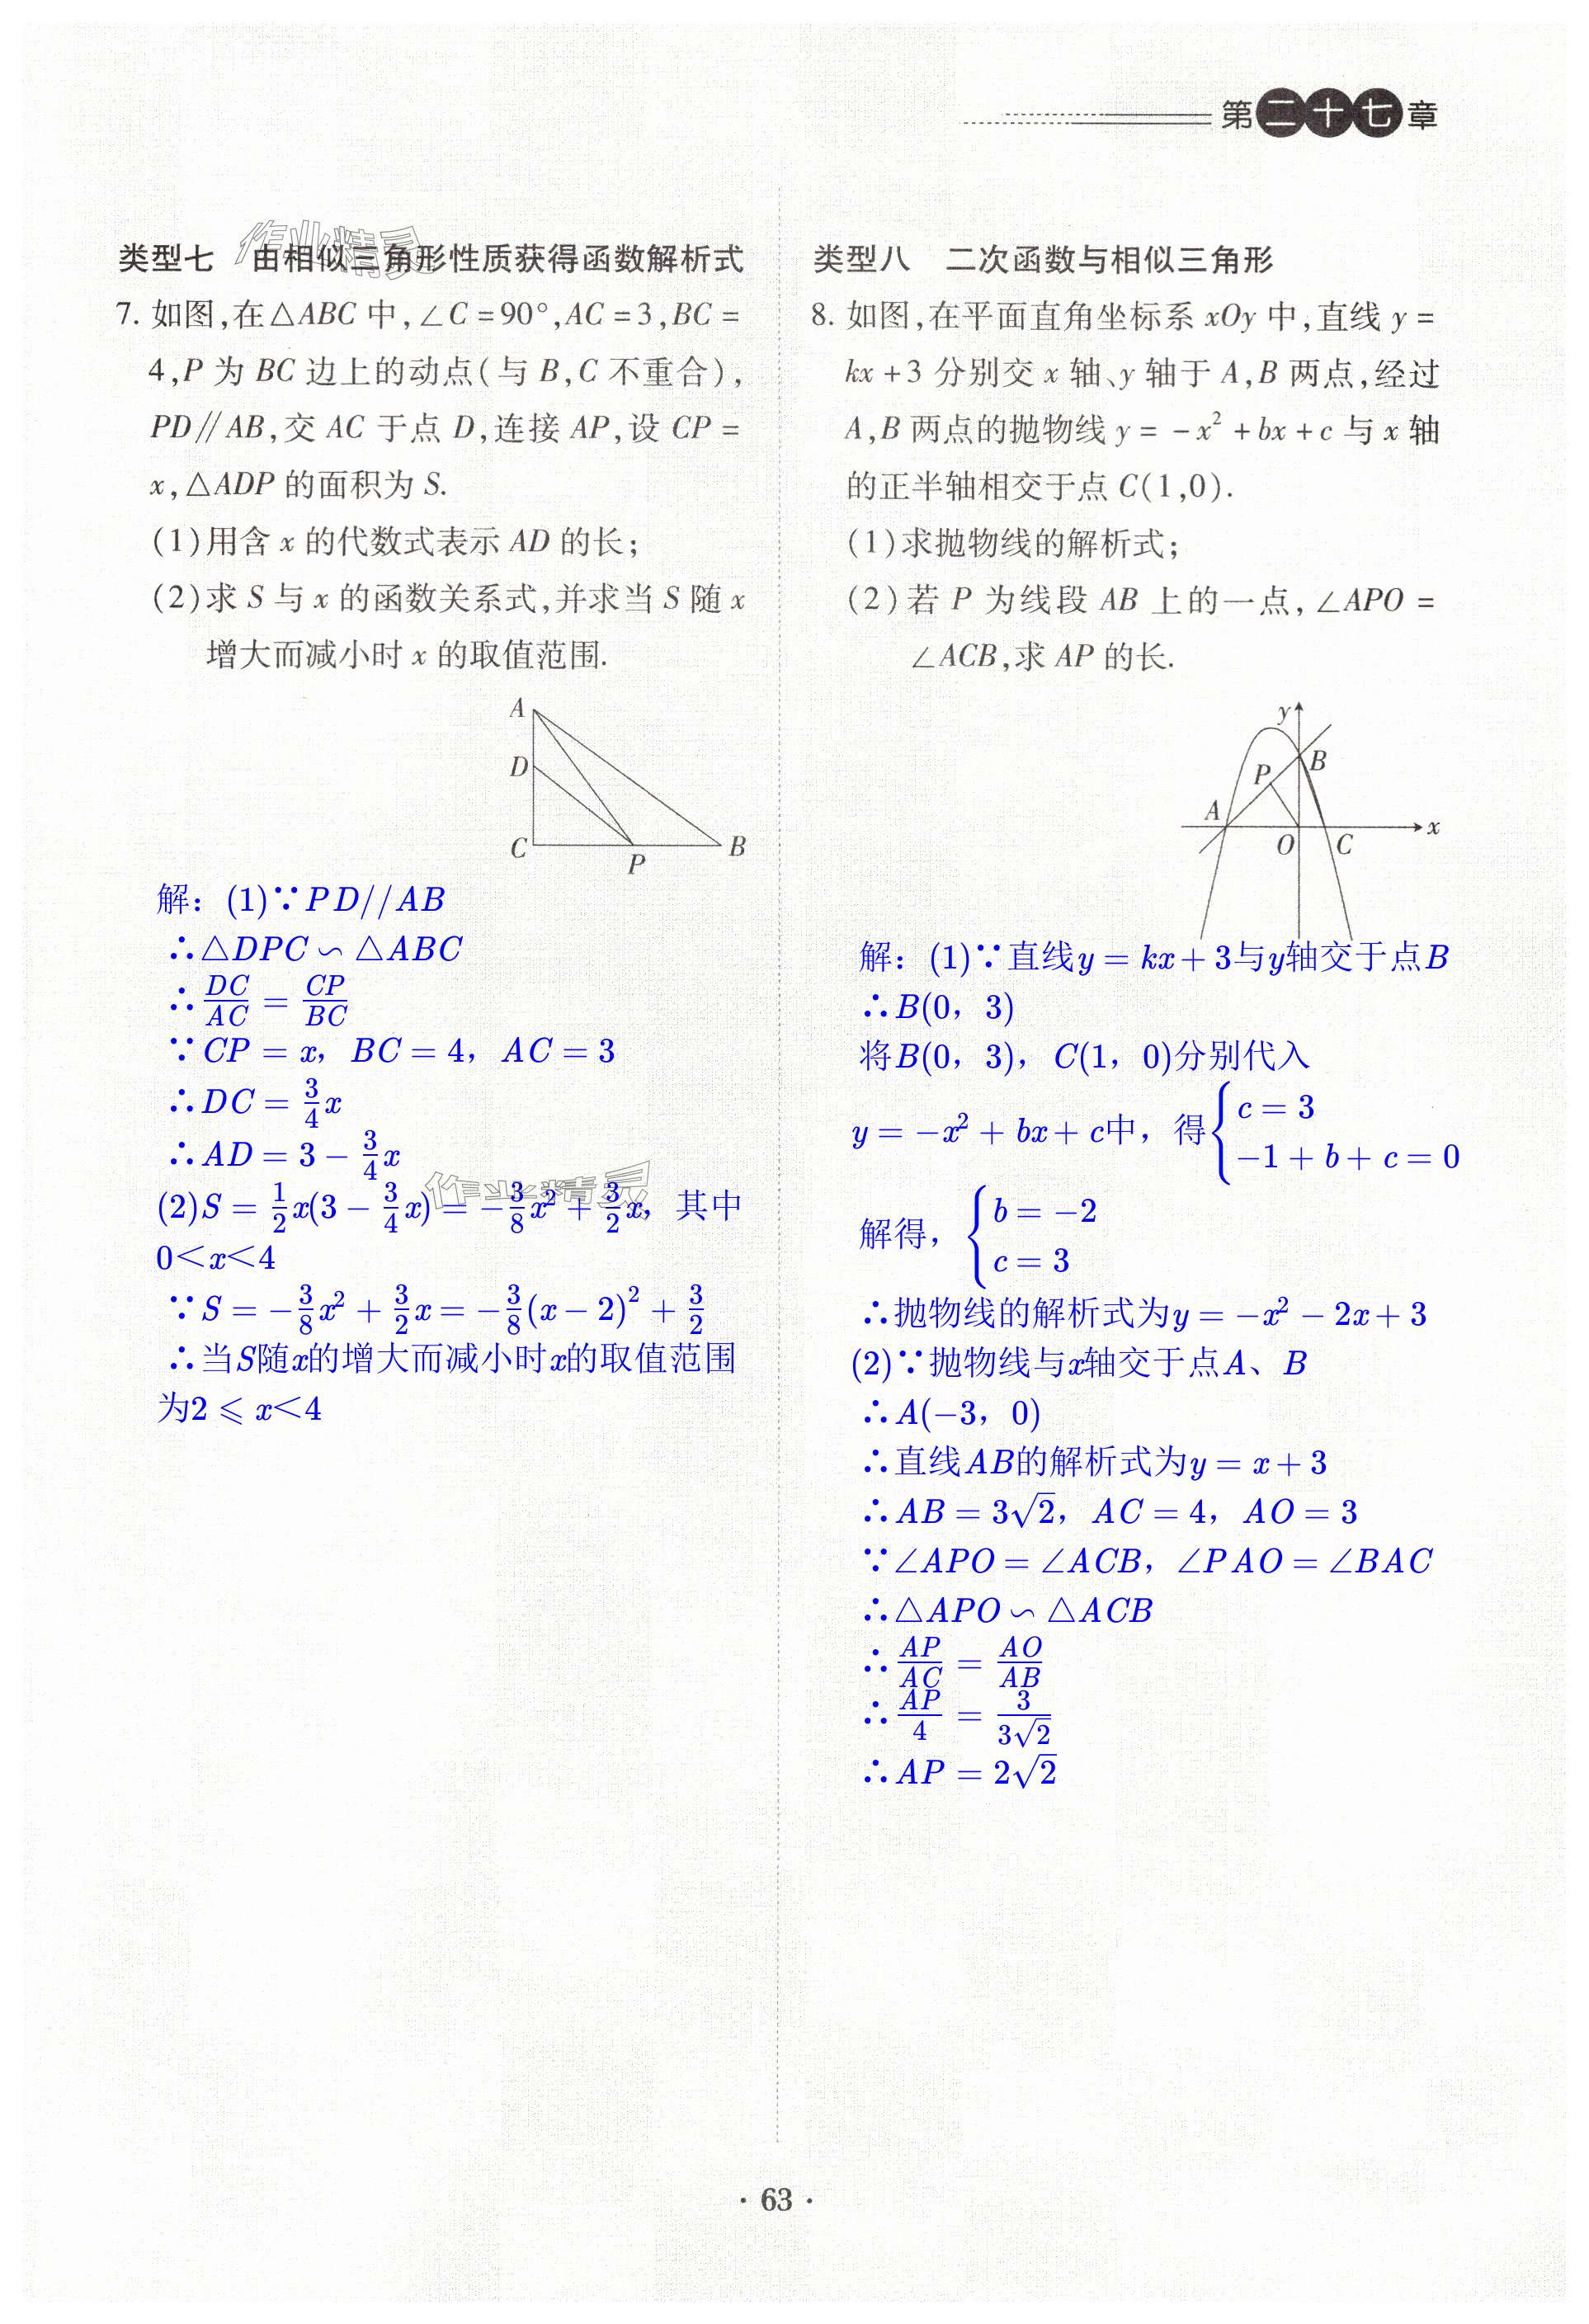 第二十七章
类型七 由相似三角形性质获得函数解析式
7. 如图,在△ABC 中,∠C=90°,AC=3,BC=
4,P 为 BC 边上的动点(与 B,C 不重合),
PD∥AB,交 AC 于点 D,连接 AP,设 CP=
x,△ADP 的面积为 S.
(1)用含 x 的代数式表示 AD 的长;
(2)求 S 与 x 的函数关系式,并求当 S 随 x
增大而减小时 x 的取值范围.
A
D
C
P
B
解：(1)∵PD//AB
∴△DPC∽△ABC
∴DC/AC = CP/BC
∵CP = x，BC = 4，AC = 3
∴DC = 3/4 x
∴AD = 3 − 3/4 x
(2)S = 1/2 x(3 − 3/4 x) = −3/8 x² + 3/2 x，其中
0<x<4
∵S = −3/8 x² + 3/2 x = −3/8 (x − 2)² + 3/2
∴当S随x的增大而减小时x的取值范围
为2 ⩽ x<4
类型八 二次函数与相似三角形
8. 如图,在平面直角坐标系 xOy 中,直线 y=
kx+3 分别交 x 轴、y 轴于 A,B 两点,经过
A,B 两点的抛物线 y=-x²+bx+c 与 x 轴
的正半轴相交于点 C(1,0).
(1)求抛物线的解析式;
(2)若 P 为线段 AB 上的一点,∠APO=
∠ACB,求 AP 的长.
y
B
P
A
x
O
C
解：(1)∵直线y = kx + 3与y轴交于点B
∴B(0，3)
将B(0，3)，C(1，0)分别代入
y = −x² + bx + c中，得{c = 3
−1 + b + c = 0
解得，{b = −2
c = 3
∴抛物线的解析式为y = −x² − 2x + 3
(2)∵抛物线与x轴交于点A、B
∴A(−3，0)
∴直线AB的解析式为y = x + 3
∴AB = 3√2，AC = 4，AO = 3
∵∠APO = ∠ACB，∠PAO = ∠BAC
∴△APO∽△ACB
∴AP/AC = AO/AB
∴AP/4 = 3/(3√2)
∴AP = 2√2
作业精灵
作业精灵
· 63 ·